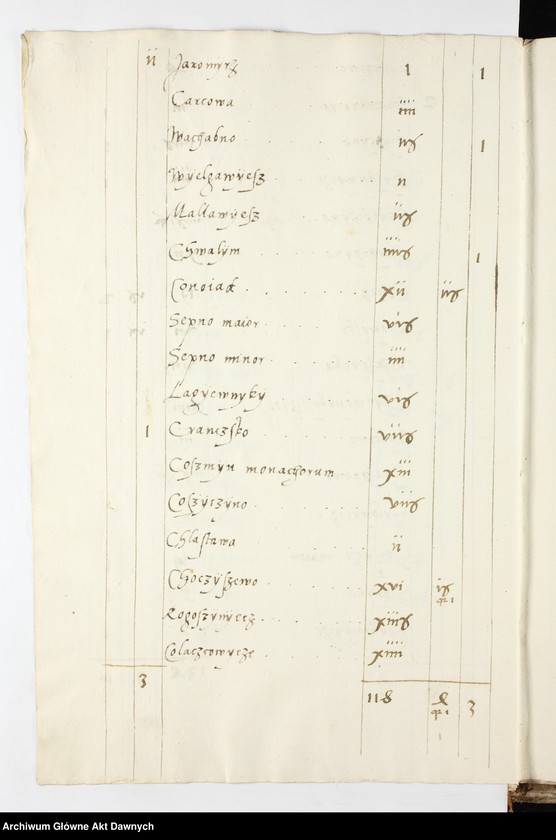 ii Jaromyrz 1 1
Carcowa iiii
Wachabno iiß 1
Wyelgawyesz ii
Mallawyesz iiß
Chwalym iiiiß 1
Conoiad xii iiß
Sepno maior viß
Sepno minor iiii
Lagyewnyky viß
1 Cranczsko viiß
Coszmyn monachorum xiii
Coszyczyno viiß
Chlastawa ii
Choczyszewo xvi iß
qr 1
Rogoszynyecz xiiiß
Colaczcowycze xiiii
3 118 qr 1 3
Archiwum Główne Akt Dawnych